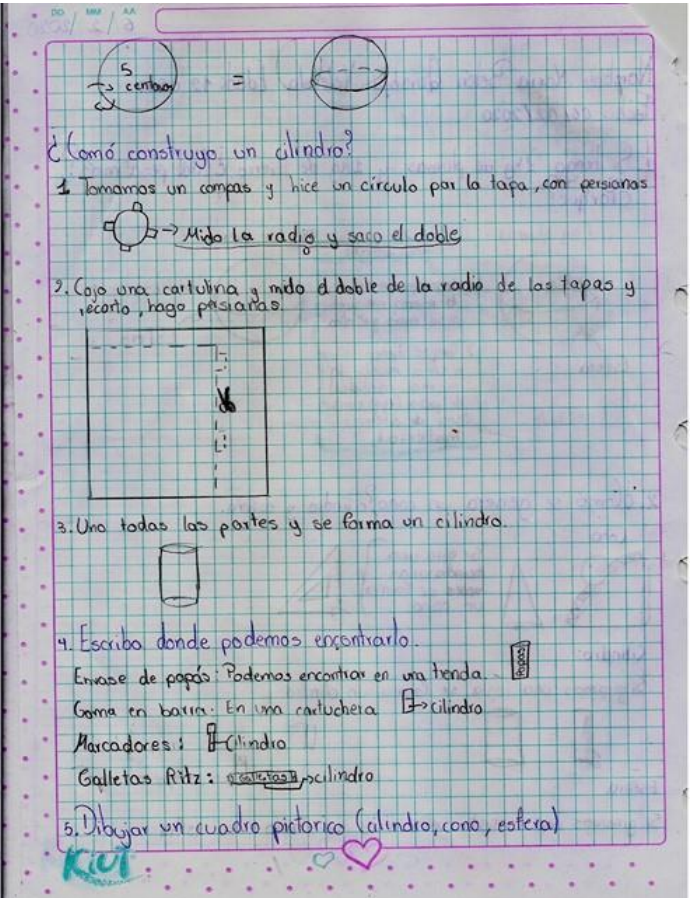 DD MM AA
6 / 2 / 2020
5
centavos
=
¿Comó construyo un cilindro?
1 Tomamos un compas y hice un círculo por la tapa, con persianas
→ Mido la radio y saco el doble
2. Cojo una cartulina y mido el doble de la radio de las tapas y
recorto, hago persianas.
3. Uno todas las partes y se forma un cilindro.
4. Escribo donde podemos encontrarlo.
Envase de papás: Podemos encontrar en una tienda. Papas
Goma en barra: En una cartuchera → cilindro
Marcadores: Cilindro
Galletas Ritz: Galletas R → cilindro
5. Dibujar un cuadro pictorico (cilindro, cono, esfera)
KIUT